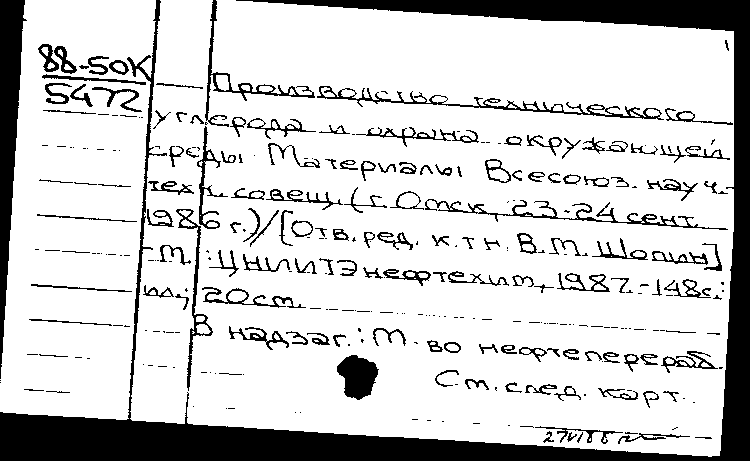 1
88-50К
5472
Производство технического
углерода и охрана окружающей
среды. Материалы Всесоюз. науч.-
техн. совещ. (г. Омск, 23-24 сент.
1986 г.) / [Отв. ред. к.т.н. В.М. Шопин]
-М. : ЦНИИТЭнефтехим, 1987.-148с.:
ил.; 20см.
В надзаг.: М-во нефтеперераб.
См. след. карт.